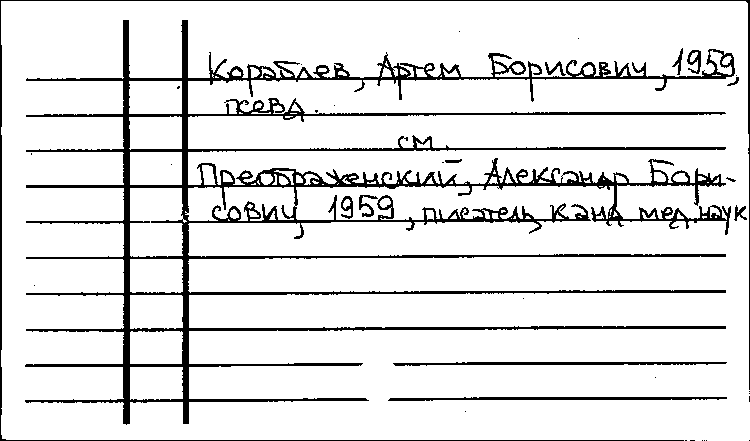 Кораблев, Артем Борисович, 1959,
псевд.
см.
Преображенский, Александр Бори-
сович, 1959, писатель, канд. мед. наук